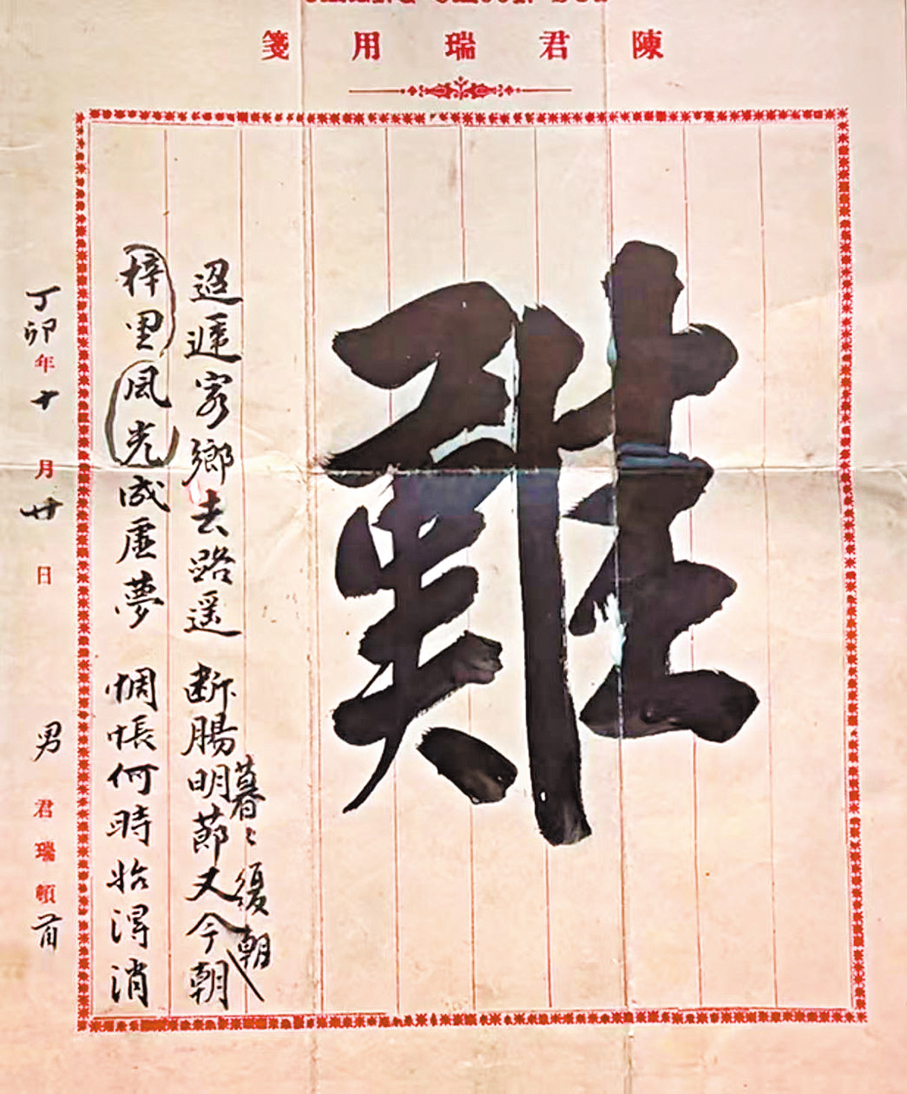 陳君瑞用箋
難
迢遞客鄉去路遥 断腸明節又今朝
暮〻復朝
梓里風光成虛夢 惆悵何時始得消
丁卯年十月廿日 男 君瑞頓首